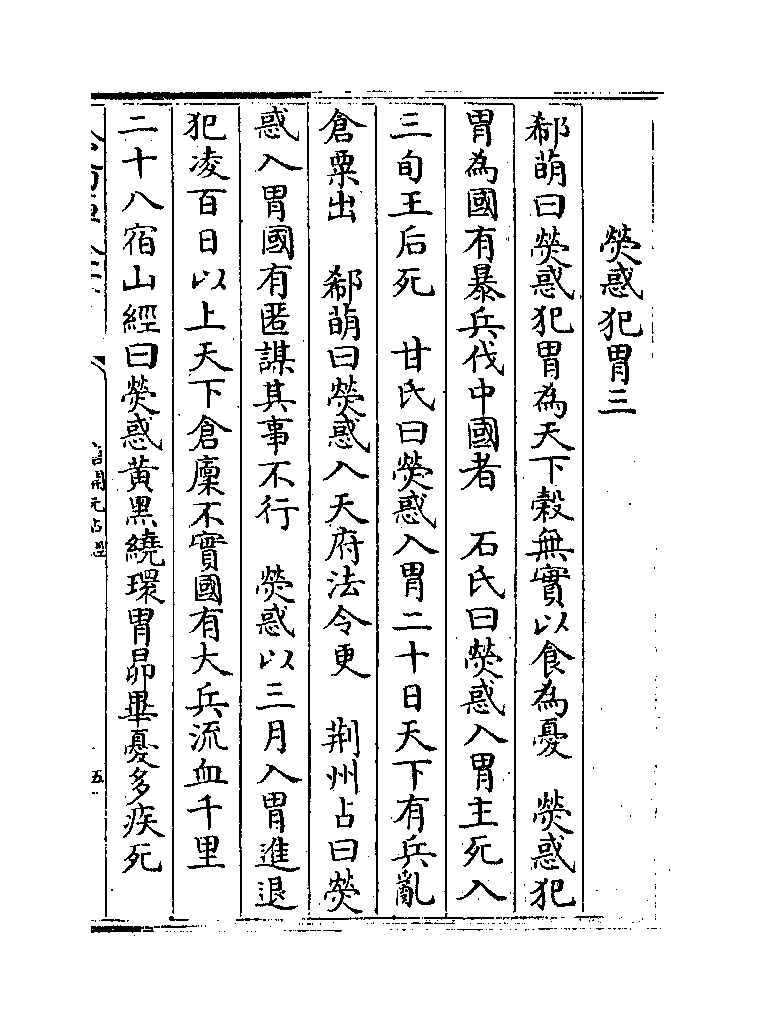 熒惑犯胃三
郗萌曰熒惑犯胃為天下穀無實以食為憂　熒惑犯
胃為國有暴兵伐中國者　石氏曰熒惑入胃主死入
三旬王后死　甘氏曰熒惑入胃二十日天下有兵亂
倉粟出　郗萌曰熒惑入天府法令更　荆州占曰熒
惑入胃國有匿謀其事不行　熒惑以三月入胃進退
犯凌百日以上天下倉廩不實國有大兵流血千里
二十八宿山經曰熒惑黄黑繞環胃昴畢憂多疾死
唐開元占經
五